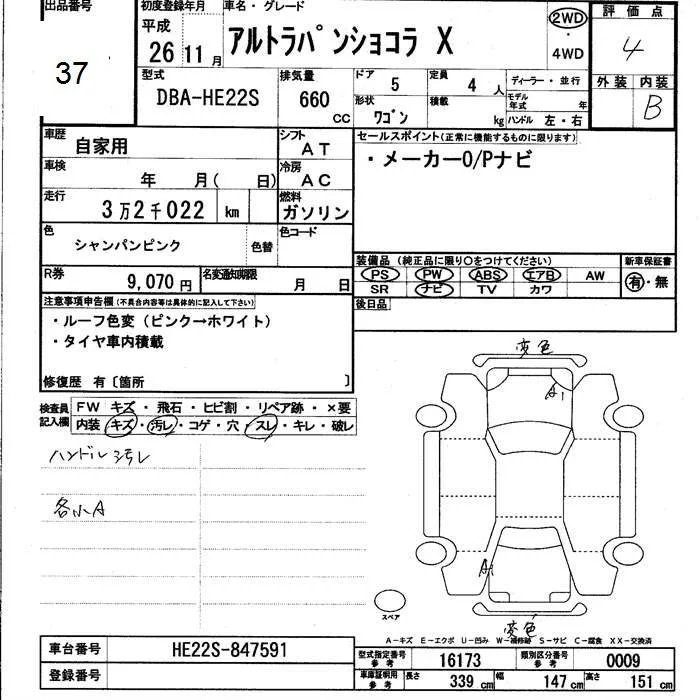 出品番号 初度登録年月 車名・グレード 評価点
37
平成 26 11月 アルトラパンショコラ X 2WD ・ 4WD 4
型式 DBA-HE22S 排気量 660 CC ドア 5 定員 4 人 ディーラー・並行 外装 内装
形状 ワゴン 積載 kg モデル年式 年 B
ハンドル 左・右
車歴 自家用 シフト AT セールスポイント(正常に機能するものに限ります)
・メーカーO/Pナビ
車検 年 月( 日) 冷房 AC
走行 3万2千022 km 燃料 ガソリン
色 シャンパンピンク 色替 色コード
装備品 (純正品に限り○をつけてください) 新車保証書
R券 9,070円 名変通知期限 月 日
PS PW ABS エアB AW 有・無
SR ナビ TV カワ
注意事項申告欄(不具合内容等は具体的に記入して下さい) 後日品
・ルーフ色変(ピンク→ホワイト)
・タイヤ車内積載
修復歴 有〔箇所 〕
変色
A1
検査員記入欄 FW キズ・飛石・ヒビ割・リペア跡・×要
内装 キズ・汚レ・コゲ・穴・スレ・キレ・破レ
ハンドル汚レ
各小A
A1
スペア
変色
A-キズ E-エクボ U-凹み W-補修跡 S-サビ C-腐食 XX-交換済
車台番号 HE22S-847591 型式指定番号 参考 16173 類別区分番号 参考 0009
登録番号 車庫証明用 参考 長さ 339 cm 幅 147 cm 高さ 151 cm